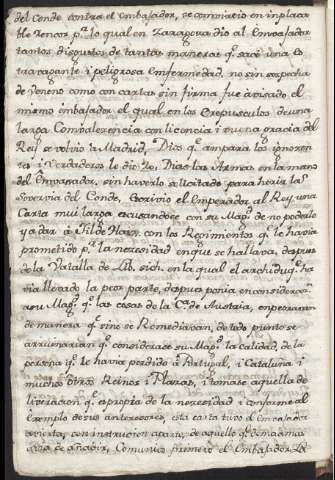 del Conde contra el embaxador, se convirtió en inplaca
ble rencor pª lo qual en Zaragoza dio al Envaxador
tantos disgustos de tantas maneras q̃ sacó una es
travagante i peligrosa enfermedad, no sin sospecha
de veneno como con cartas sin firma fue avisado el
mismo embaxador el qual en los Crepusculos de una
larga Convalerencia con licencia i buena gracia del
Rey se volvio a Madrid, Dios q̃ ampara los ignoren
tes i Verdaderos le dio Dias las Armas en la mano
del Embaxador, sin haverlo solicitado para herir la
Sovervia del Conde, Escrivio el Emperador al Rey una
Carta mui larga escusandose con su Magᵈ de no poderle
ayudar a con los Regimientos q̃ le havia
prometido pª la necesidad en que se hallava, despues
de la Vatalla de Lib. sich. en la qual el archiduq̃ ha
via llevado la peor parte, despues ponia en consideracion
a su Magᵈ q̃ las cosas de la Cª de Austria, enpeoravan
de manera q̃ sino se Remediavan, de todo punto se
arruinarian q̃ considerase su Magᵈ la calidad, de la
persona q̃ le havia perdido a Portugal, i Cataluna i
muchos otros Reinos i Plazas, i tomase aquella de
liberacion q̃ es propia de la necesidad i conforme al
Exemplo de sus antecesores, esta carta tuvo el Envaxador
avierta, con instrucion aparte de aquello q̃ de mas
avia de añadir, Comunicó primero el Embaxador la